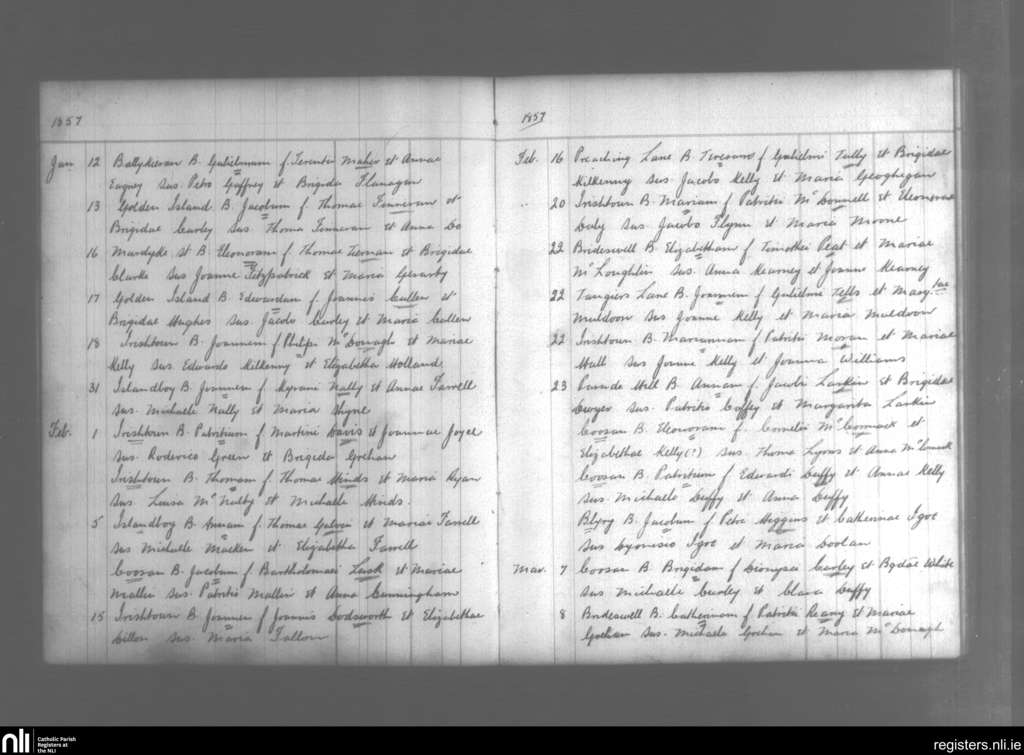 1857
Jan 12 Ballykeeran B. Gulielmum f. Terentii Maher et Annae
Eagney sus. Petro Gaffney et Brigida Flanagan
13 Golden Island B. Jacobum f Thomae Finneran et
Brigidae Curley sus Thoma Finneran et Anna Do
16 Mardyke St B. Eleonoram f Thomae Tiernan et Brigidae
Clarke sus Joanne Fitzpatrick et Maria Gerarty
17 Golden Island B. Edwardum f. Joannis Cullen et
Brigidae Hughes sus. Jacobo Curley et Maria Cullen
18 Irishtown B. Joannem f Philipi McDonagh et Mariae
Kelly sus. Edwardo Kilkenny et Elizabetha Holland
31 Islandboy B. Joannem f Kyrani Nally et Annae Farrell
sus. Michaele Nally et Maria Shyne
Feb. 1 Irishtown B. Patritium f Martini Davis et Joannae Joyce
sus. Roderico Green et Brigida Grehan
Irishtown B. Thomam f Thomae Hinds et Maria Ryan
sus. Luisa McNulty et Michaele Hinds.
5 Islandboy B. Annam f. Thomae Galvin et Mariae Farrell
sus Michaele Macken et Elizabetha Farrell
Coosan B. Jacobum f Bartholomaei Lusk et Mariae
Mallin sus. Patritio Mallin et Anna Cunningham
15 Irishtown B. Joannem f Joannis Dodsworth et Elizabethae
Dillon sus. Maria Fallon
1857
Feb. 16 Preaching Lane B. Teresam f Gulielmi Tully et Brigidae
Kilkenny sus Jacobo Kelly et Maria Geoghegan
20 Irishtown B. Mariam f Patritii McDonnell et Eleonorae
Daly sus. Jacobo Flynn et Maria Moone
22 Brideswell B. Elizabetham f Timothei Peat et Mariae
McLoughlin sus. Anna Kearney et Joanne Kearney
22 Tangiers Lane B. Joannem f Gulielmi Tells et Margtae
Muldoon sus Joanne Kelly et Maria Muldoon
22 Irishtown B. Mariannam f Patritii Moran et Mariae
Hall sus Joanne Kelly et Joanna Williams
23 Parade Hill B. Annam f. Jacobi Larkin et Brigidae
Dwyer sus. Patritio Coffey et Margarita Larkin
Coosan B. Eleonoram f. Cornelii McCormack et
Elizabethae Kelly(?) sus. Thoma Lyons et Anna McCormack
Coosan B. Patritium f Edwardi Duffy et Annae Kelly
sus. Michaele Duffy et Anna Duffy
Blyog B. Jacobum f Petri Higgins et Catherinae Igoe
sus Dyonisio Igoe et Maria Doolan
Mar. 7 Coosan B Brigidam f Dionysii Curley et Bgdae White
sus Michaele Curley et Clara Duffy
8 Brideswell B. Catherinam f Patritii Reany et Mariae
Grehan sus. Michaele Grehan et Maria McDonagh
nli
Catholic Parish
Registers at
the NLI
registers.nli.ie